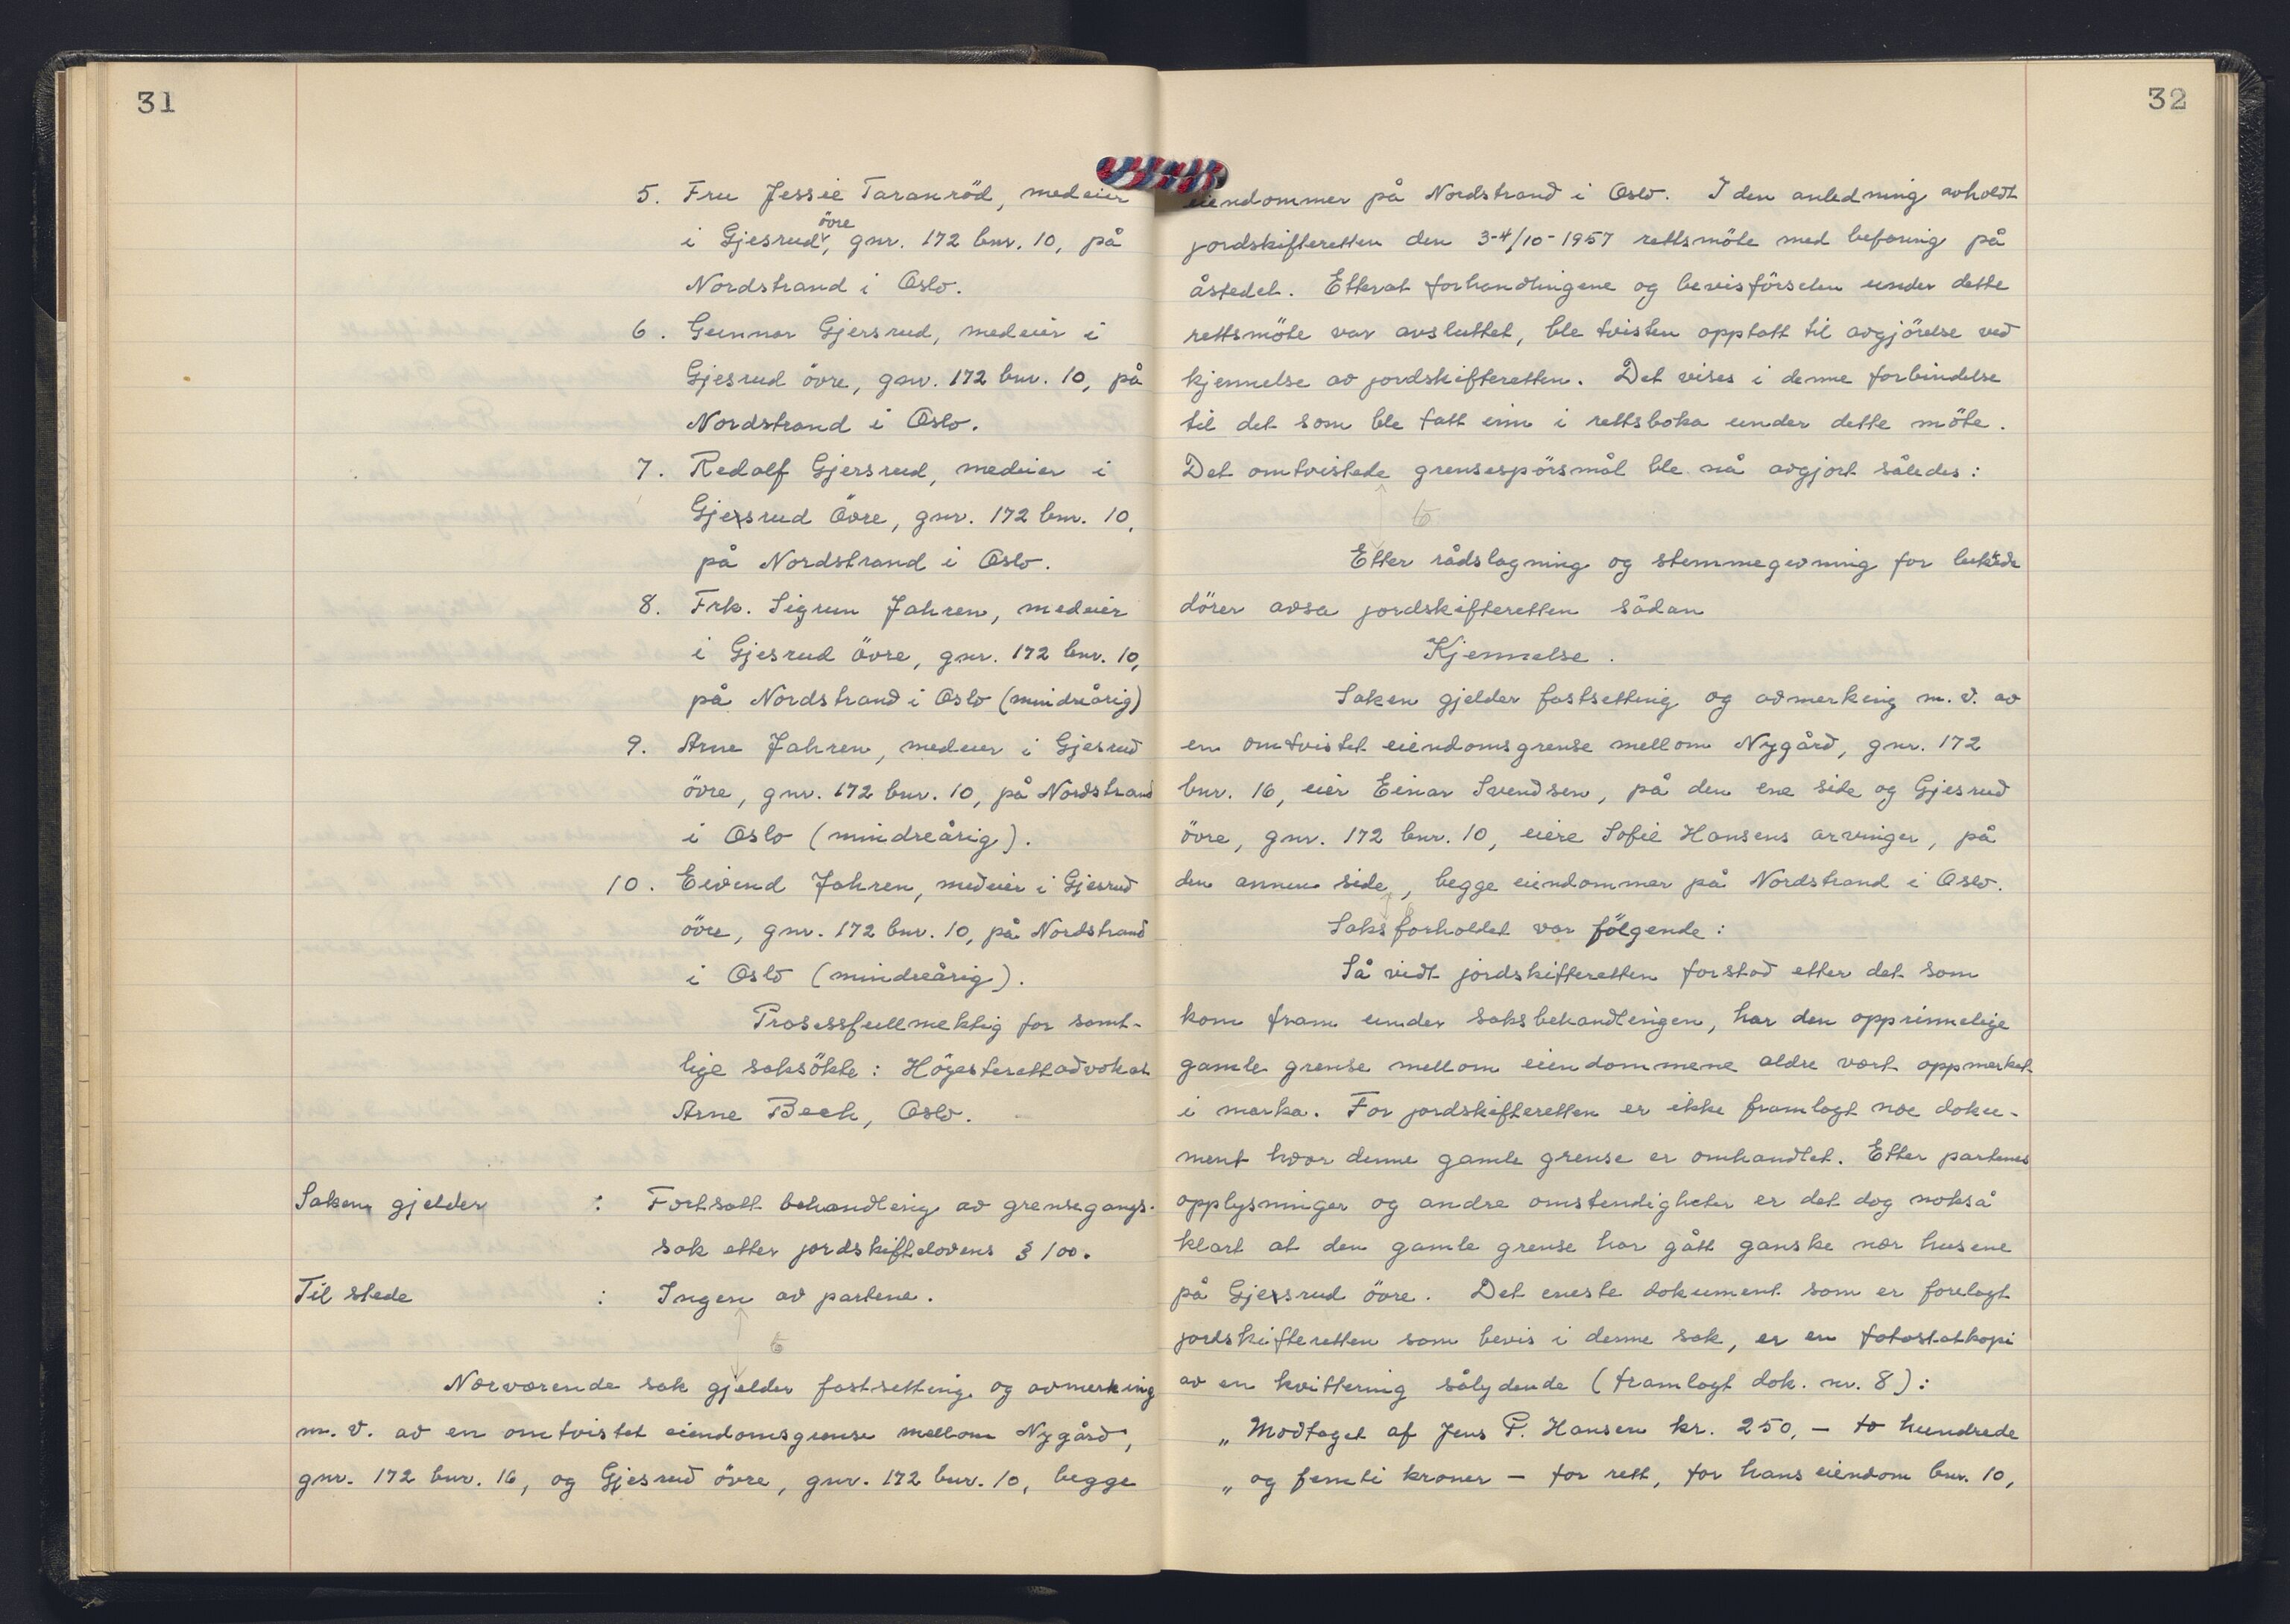 31
5. Fru Jessie Taranröd, medeier
i Gjesrud övre, gnr. 172 bnr. 10, på
Nordstrand i Oslo.
6. Gunnar Gjersrud, medeier i
Gjesrud övre, gnr. 172 bnr. 10, på
Nordstrand i Oslo.
7. Redolf Gjersrud, medeier i
Gjersrud Övre, gnr. 172 bnr. 10,
på Nordstrand i Oslo.
8. Frk. Sigrun Jahren, medeier
i Gjesrud Övre, gnr. 172 bnr. 10,
på Nordstrand i Oslo (mindreårig)
9. Arne Jahren, medeier i Gjesrud
övre, gnr. 172 bnr. 10, på Nordstrand
i Oslo (mindreårig).
10. Eivind Jahren, medeier i Gjesrud
övre, gnr. 172 bnr. 10, på Nordstrand
i Oslo (mindreårig).
Prosessfullmektig for samt-
lige saksökte: Höyesterettadvokat
Arne Bech, Oslo.
Saken gjelder : Fortsatt behandling av grensegangs-
sak etter jordskiftelovens § 100.
Til stede : Ingen av partene.
Nærværende sak gjelder fastsetting og avmerking
m. v. av en omtvistet eiendomsgrense mellom Nygård,
gnr. 172 bnr. 16, og Gjesrud övre, gnr. 172 bnr. 10, begge
32
eiendommer på Nordstrand i Oslo. I den anledning avholdt
jordskifteretten den 3-4/10-1957 rettsmöte med befaring på
åstedet. Etterat forhandlingene og bevisförselen under dette
rettsmöte var avsluttet, ble tvisten opptatt til avgjörelse ved
kjennelse av jordskifteretten. Det vises i denne forbindelse
til det som ble tatt inn i rettsboka under dette möte.
Det omtvistede grensespörsmål ble nå avgjort således:
Etter rådslagning og stemmegivning for lukkede
dörer avsa jordskifteretten sådan
Kjennelse.
Saken gjelder fastsetting og avmerking m. v. av
en omtvistet eiendomsgrense mellom Nygård, gnr. 172
bnr. 16, eier Einar Svendsen, på den ene side og Gjesrud
övre, gnr. 172 bnr. 10, eiere Sofie Hansens arvinger, på
den annen side, begge eiendommer på Nordstrand i Oslo.
Saksforholdet var fölgende:
Så vidt jordskifteretten forstod etter det som
kom fram under saksbehandlingen, har den opprinnelige
gamle grense mellom eiendommene aldre vært oppmerket
i marka. For jordskifteretten er ikke framlagt noe doku-
ment hvor denne gamle grense er omhandlet. Etter partenes
opplysninger og andre omstendigheter er det dog nokså
klart at den gamle grense har gått ganske nær husene
på Gjersrud övre. Det eneste dokument som er forelagt
jordskifteretten som bevis i denne sak, er en fotostatkopi
av en kvittering sålydende (framlagt dok. nr. 8):
„ Modtaget af Jens P. Hansen kr. 250,- to hundrede
„ og femti kroner - for rett, for hans eiendom bnr. 10,